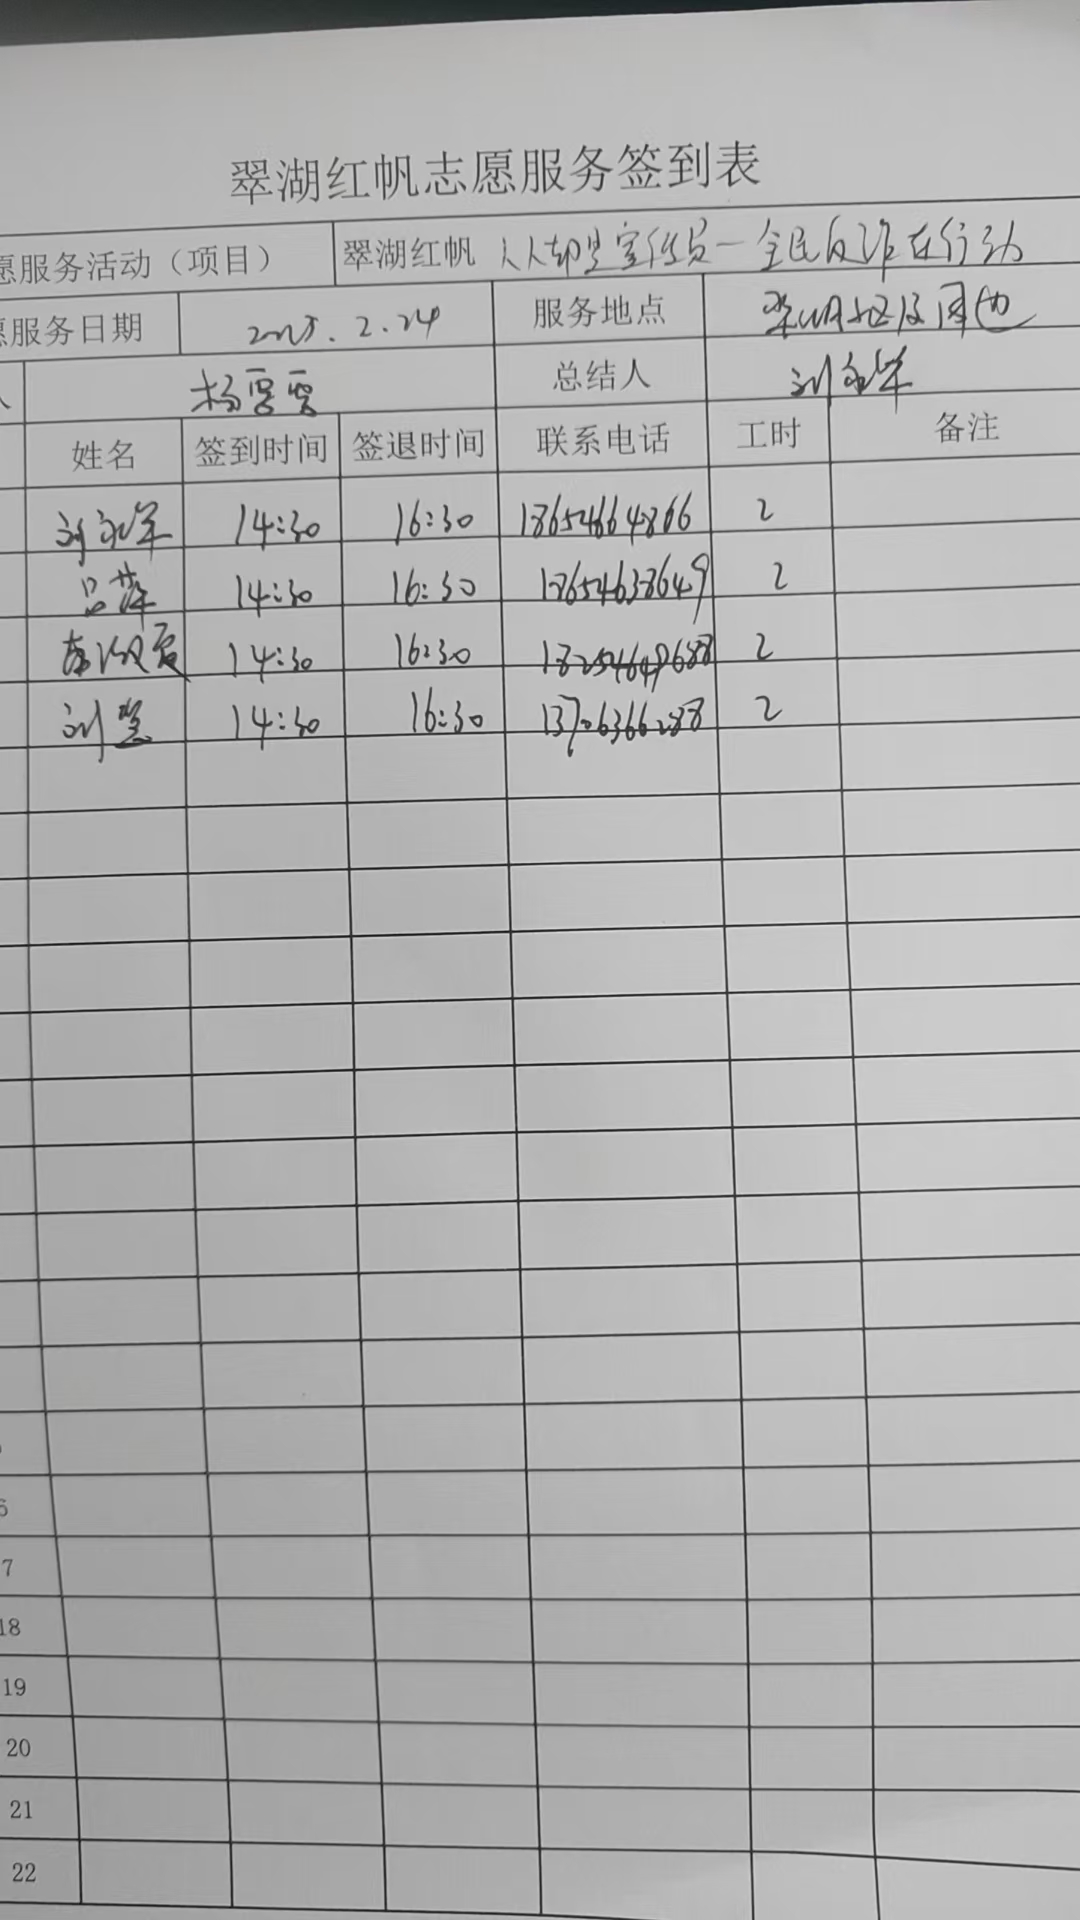 翠湖红帆志愿服务签到表
愿服务活动（项目） 翠湖红帆 人人都是宣传员一全民反诈在行动
愿服务日期 2025.2.24 服务地点 翠湖社区及周边
人 杨雪雪 总结人 刘永军
姓名 签到时间 签退时间 联系电话 工时 备注
刘永军 14:30 16:30 18654664866 2
吕萍 14:30 16:30 18654638649 2
14:30 16:30 18254649688 2
刘慧 14:30 16:30 13706366288 2
6
7
18
19
20
21
22